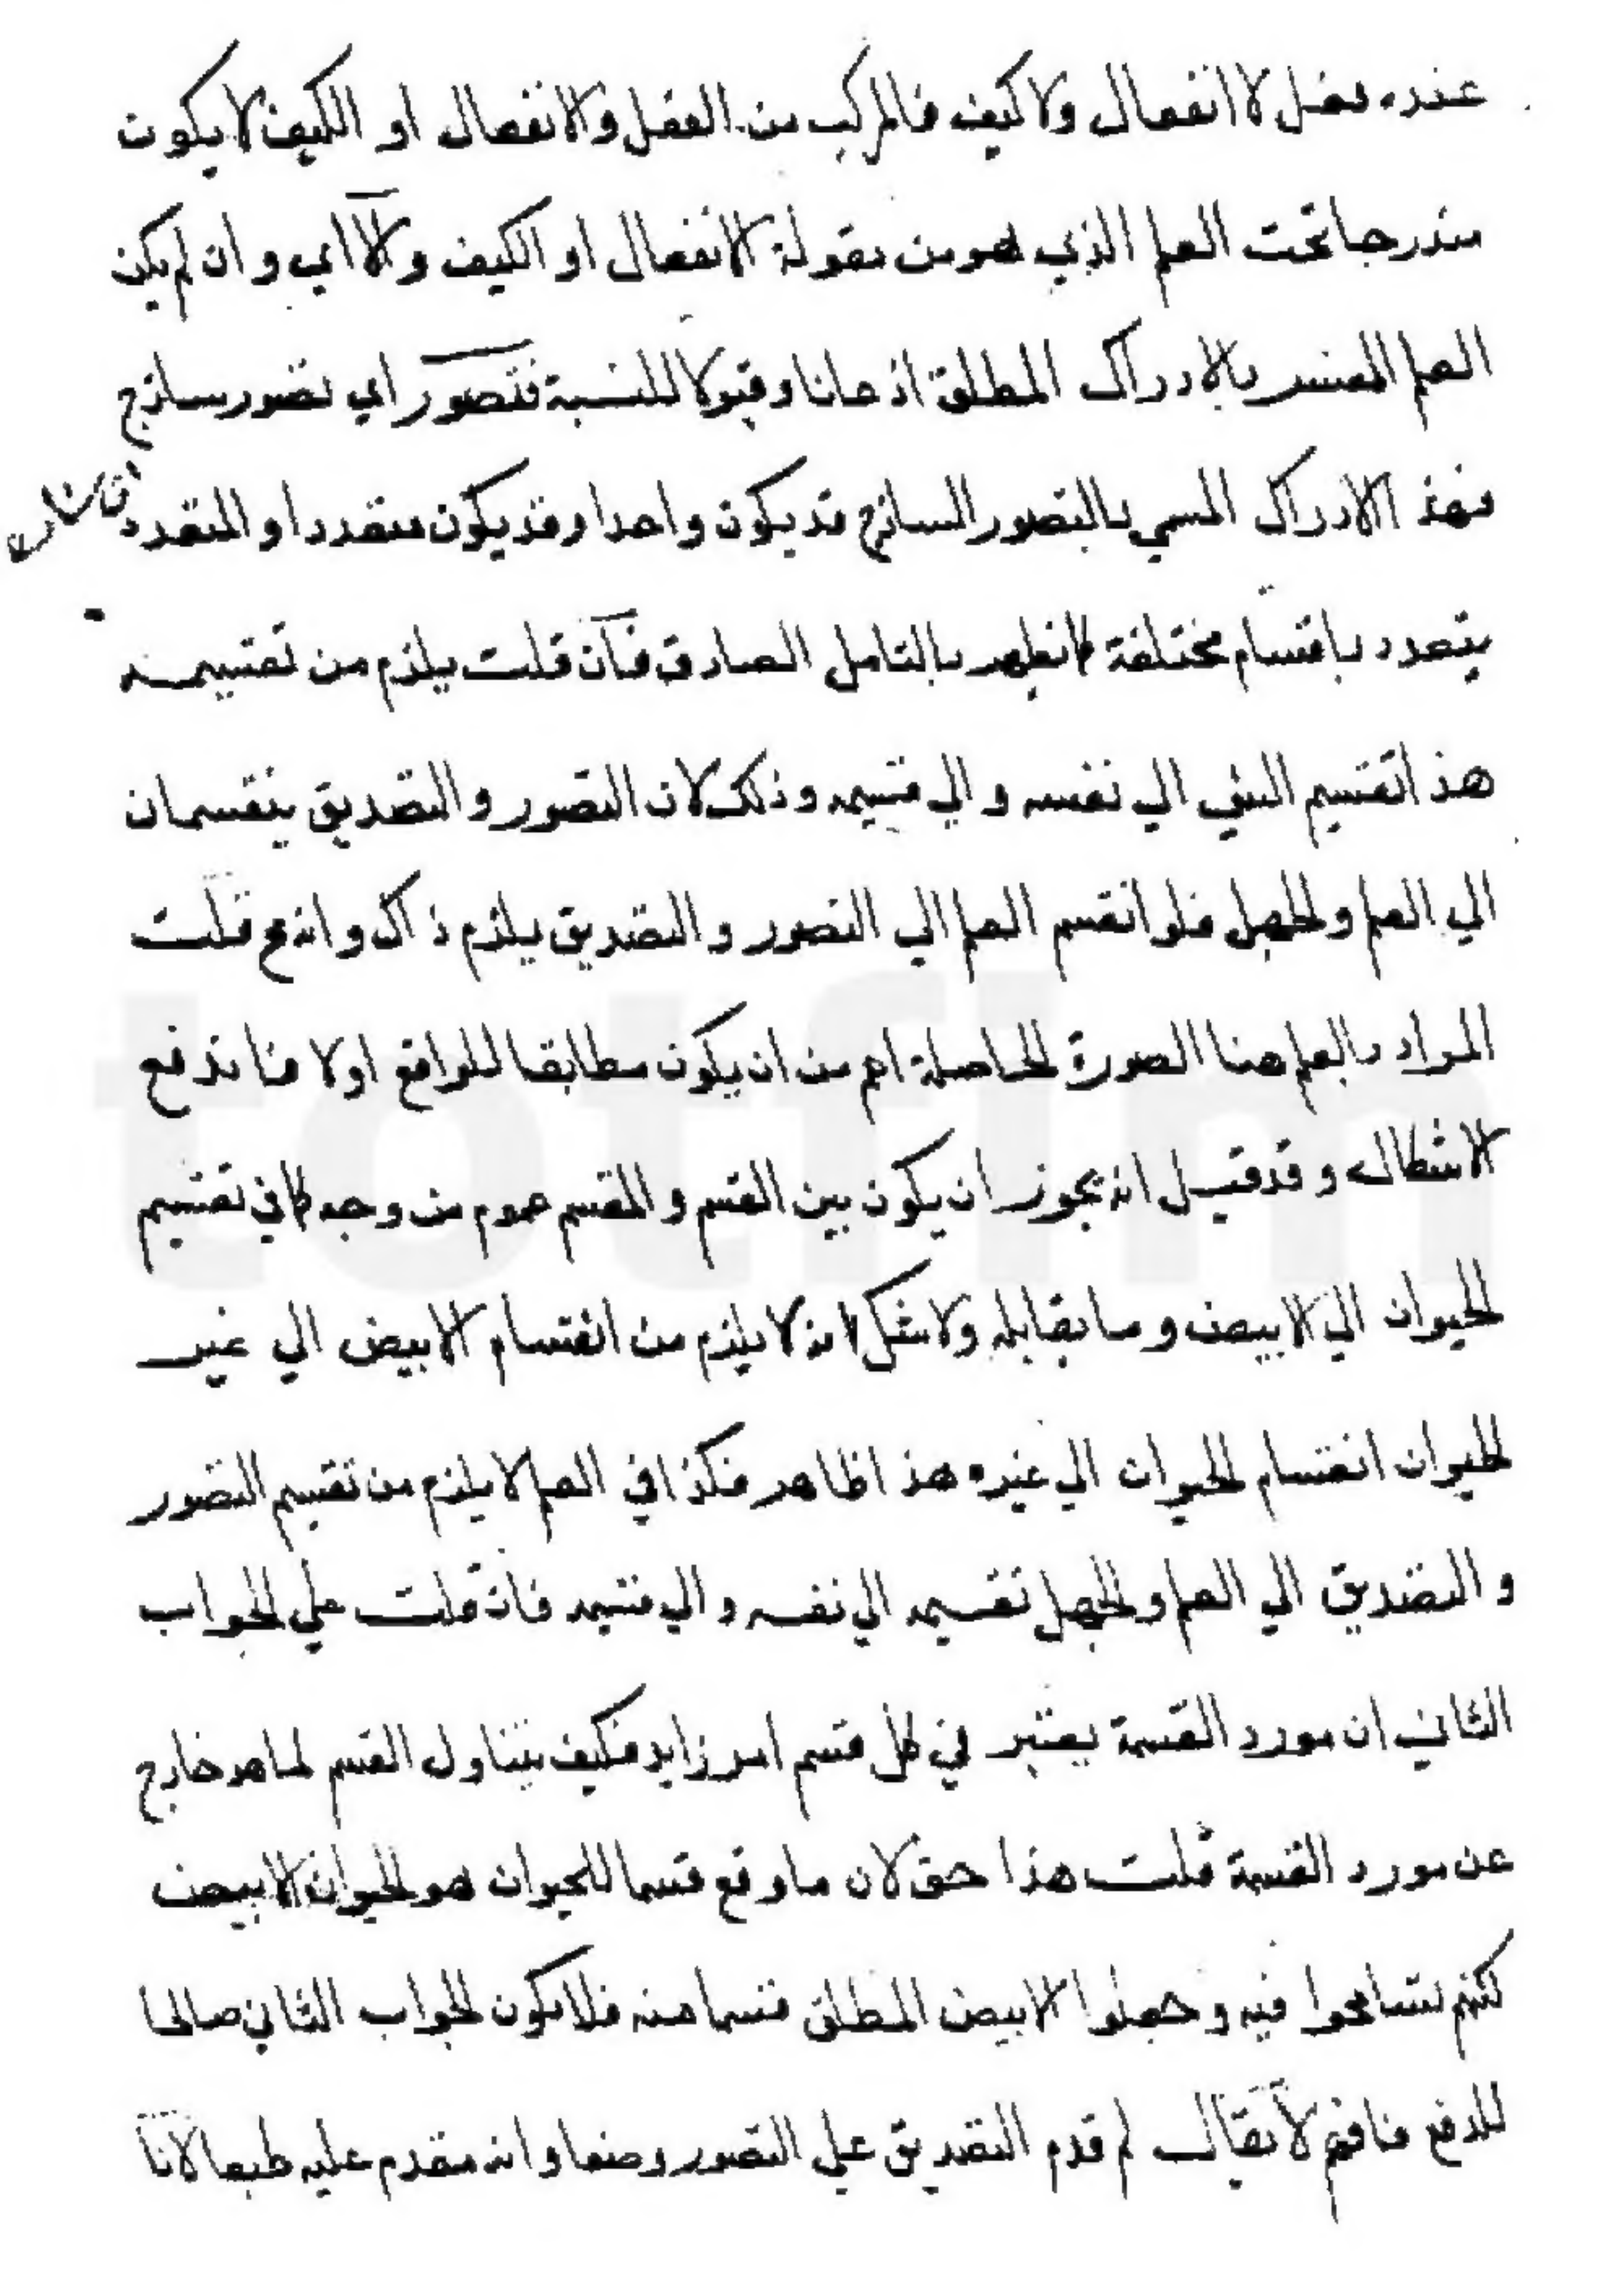 عنده فعل لا انفعال ولا كيف فالمركب من الفعل والانفعال او الكيف لا يكون
مندرجا تحت العلم الذي هو من مقولة الانفعال او الكيف والا اي وان لم يكن
العلم المفسر بالادراك المطلق اذعانا وقبولا للنسبة فتصور اي تصور ساذج
فهذا الادراك المسمي بالتصور الساذج قد يكون واحدا وقد يكون متعددا والمتعدد
يتعدد باقسام مختلفة كما يظهر بالتامل الصادق فان قلت يلزم من تقسيمه
هذا تقسيم الشي الي نفسه والي قسيمه وذلك لان التصور والتصديق ينقسمان
الي العلم والجهل فلو انقسم العلم الي التصور والتصديق يلزم ذاك وانه مح قلت
المراد بالعلم هنا الصورة الحاصلة اعم من ان يكون مطابقا للواقع اولا فاندفع
الاشكال وقد قيل انه يجوز ان يكون بين القسم والمقسم عموم من وجه كما في تقسيم
الحيوان الي الابيض وما يقابله ولا شك انه لا يلزم من انقسام الابيض الي غير
الحيوان انقسام الحيوان الي غيره هذا ظاهر فكذا في العلم لا يلزم من تقسيم التصور
والتصديق الي العلم والجهل تقسيمه الي نفسه والي قسيمه فان قلت علي الجواب
الثاني ان مورد القسمة يعتبر في كل قسم امر زايد فكيف يتناول القسم لما هو خارج
عن مورد القسمة قلت هذا حق لان ما وقع قسما للحيوان هو الحيوان الابيض
لكنهم تسامحوا فيه وجعلوا الابيض المطلق قسما منه فلا يكون الجواب الثاني صالحا
للدفع فافهم لا يقال لم قدم التصديق علي التصور وضعا وانه مقدم عليه طبعا لانا